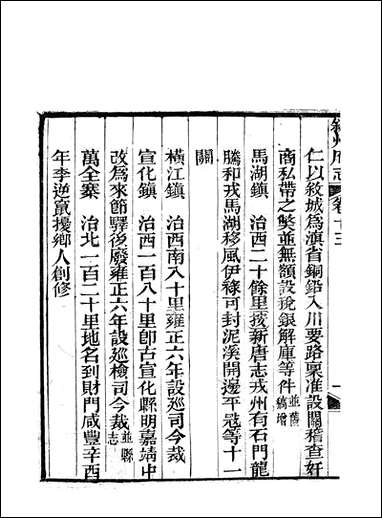 敘州府志 卷十三 一
仁以敘城爲滇省銅鉛入川要路稟准設關稽查奸
商私帶之獘並無額設稅銀解庫等件 並舊稿增
馬湖鎮 治西二十餘里按新唐志戎州有石門龍
騰和戎馬湖移風伊祿可封泥溪開邊平寇等十一
關
橫江鎮 治西南八十里雍正六年設巡司今裁
宣化鎮 治西一百八十里卽古宣化縣明嘉靖中
改爲來節驛後廢雍正六年設巡檢司今裁 並縣志
萬全寨 治北一百二十里地名到財門咸豐辛酉
年李逆竄擾鄉人創修